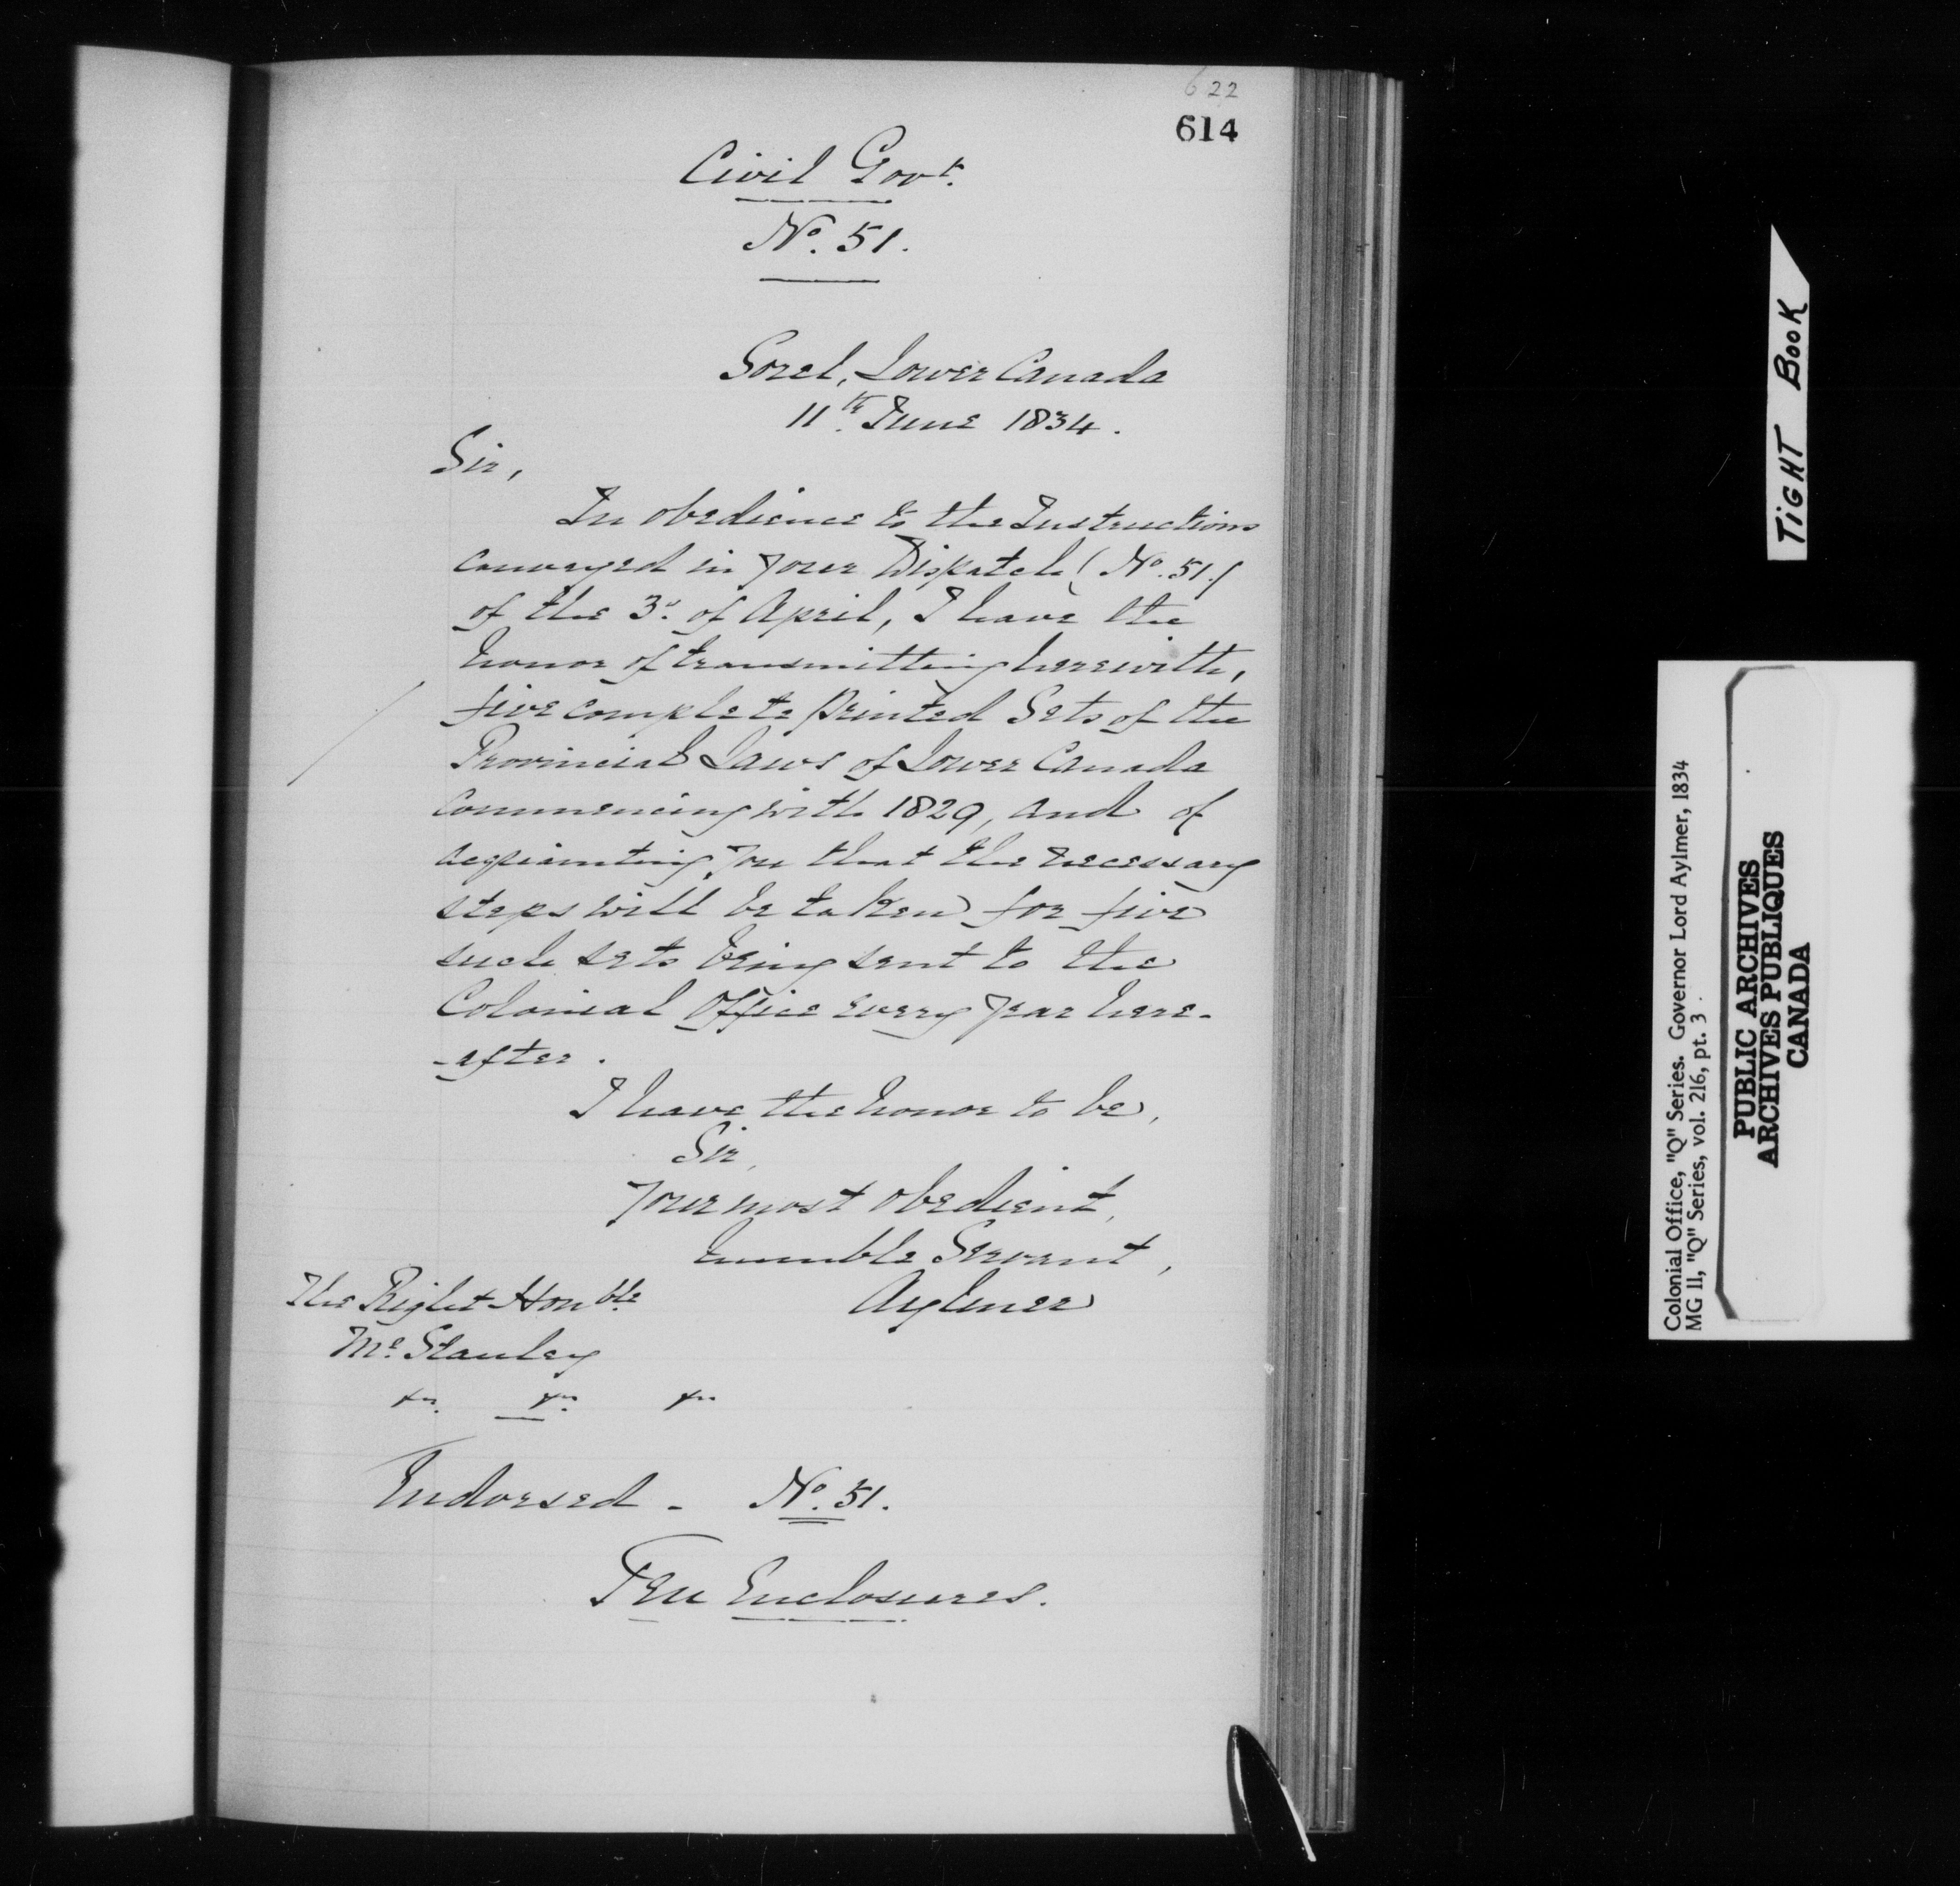 622
614
Civil Govt.
No. 51.
Sorel, Lower Canada
11th June 1834.
Sir,
In obedience to the Instructions
conveyed in your Dispatch (No. 51.)
of the 3d. of April, I have the
honor of transmitting herewith,
five complete printed Sets of the
Provincial Laws of Lower Canada
commencing with 1829, and of
acquainting you that the necessary
steps will be taken for five
such sets being sent to the
Colonial Office every year here-
-after.
I have the honor to be,
Sir,
Your most obedient,
humble Servant,
Aylmer
The Right Honble.
Mr. Stanley
&c. &c. &c.
Endorsed - No. 51.
Ten Enclosures.
TIGHT BOOK
Colonial Office, "Q" Series. Governor Lord Aylmer, 1834
MG 11, "Q" Series, vol. 216, pt. 3.
PUBLIC ARCHIVES
ARCHIVES PUBLIQUES
CANADA